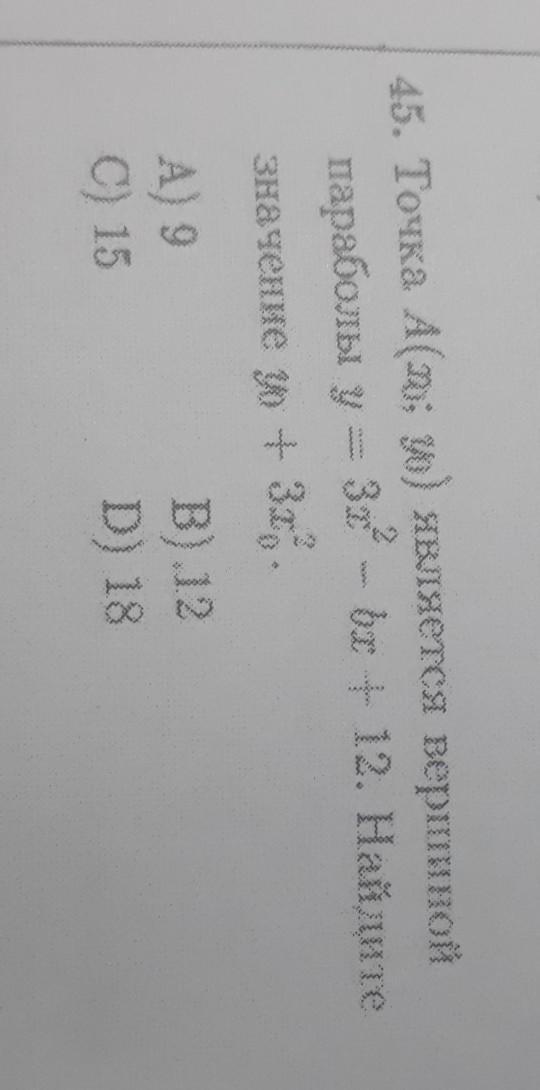 45. Точка A(x₀; y₀) является вершиной
параболы y = 3x² − bx + 12. Найдите
значение y₀ + 3x₀².
A) 9 B) 12
C) 15 D) 18